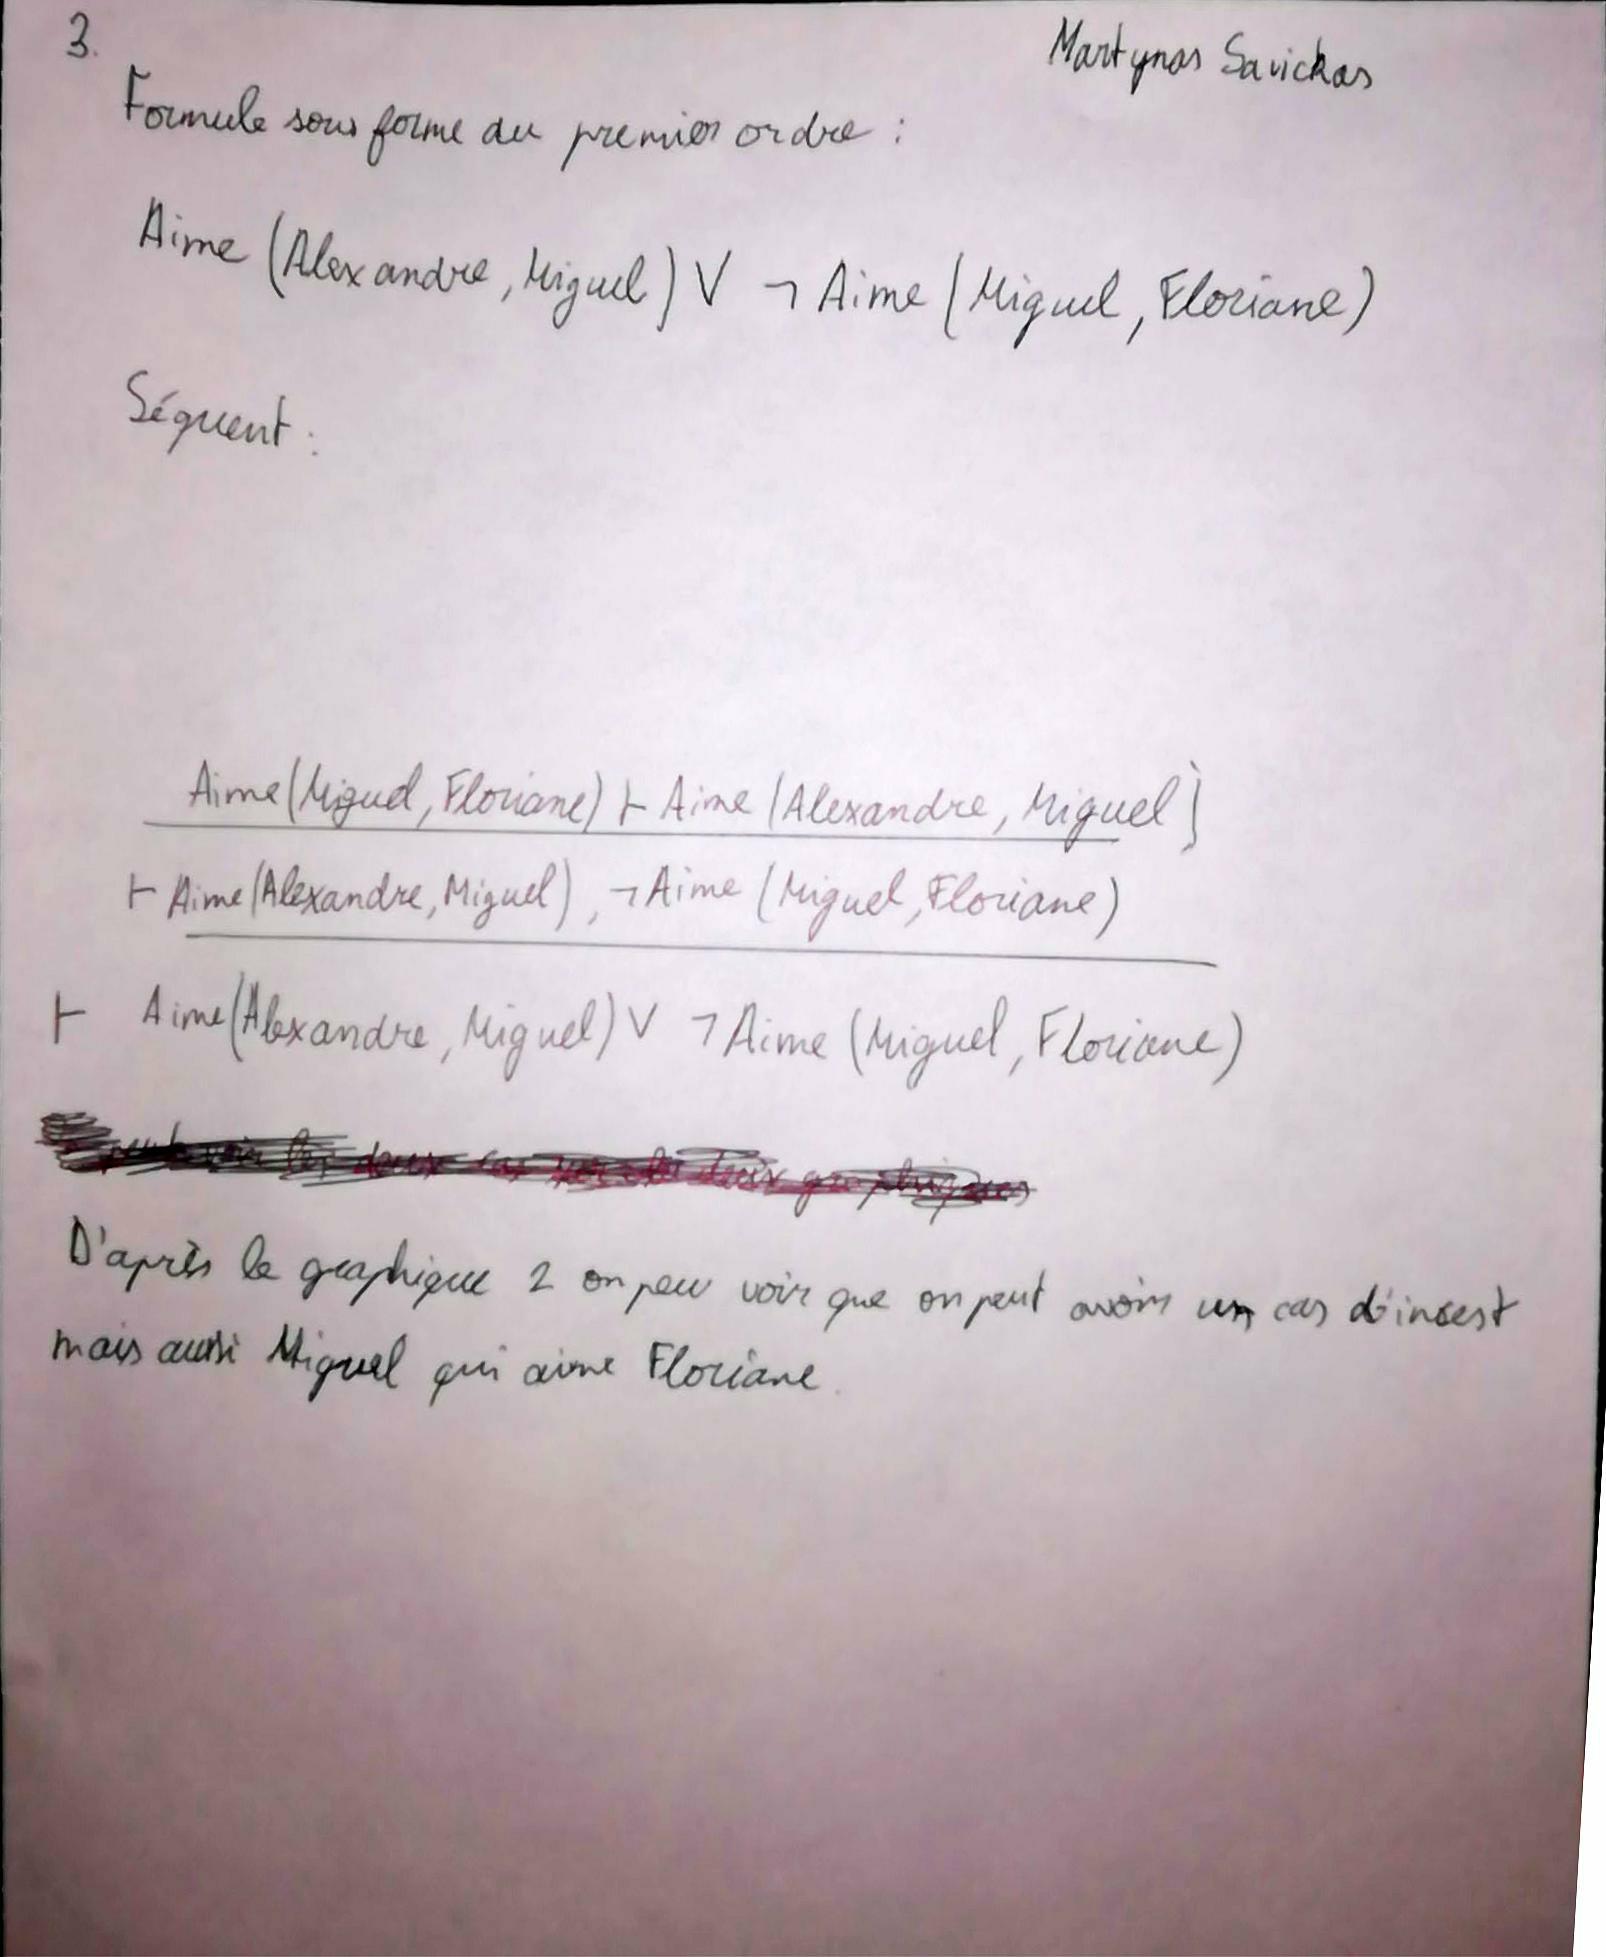 3.
Martynas Savickas
Formule sous forme du premier ordre :
Aime (Alexandre, Miguel) V ¬ Aime (Miguel, Floriane)
Séquent :
Aime (Miguel, Floriane) ⊢ Aime (Alexandre, Miguel)
⊢ Aime (Alexandre, Miguel), ¬ Aime (Miguel, Floriane)
⊢ Aime (Alexandre, Miguel) V ¬ Aime (Miguel, Floriane)
les deux cas deux graphiques
D'après le graphique 2 on peu voir que on peut avoir un cas d'incest
mais aussi Miguel qui aime Floriane.